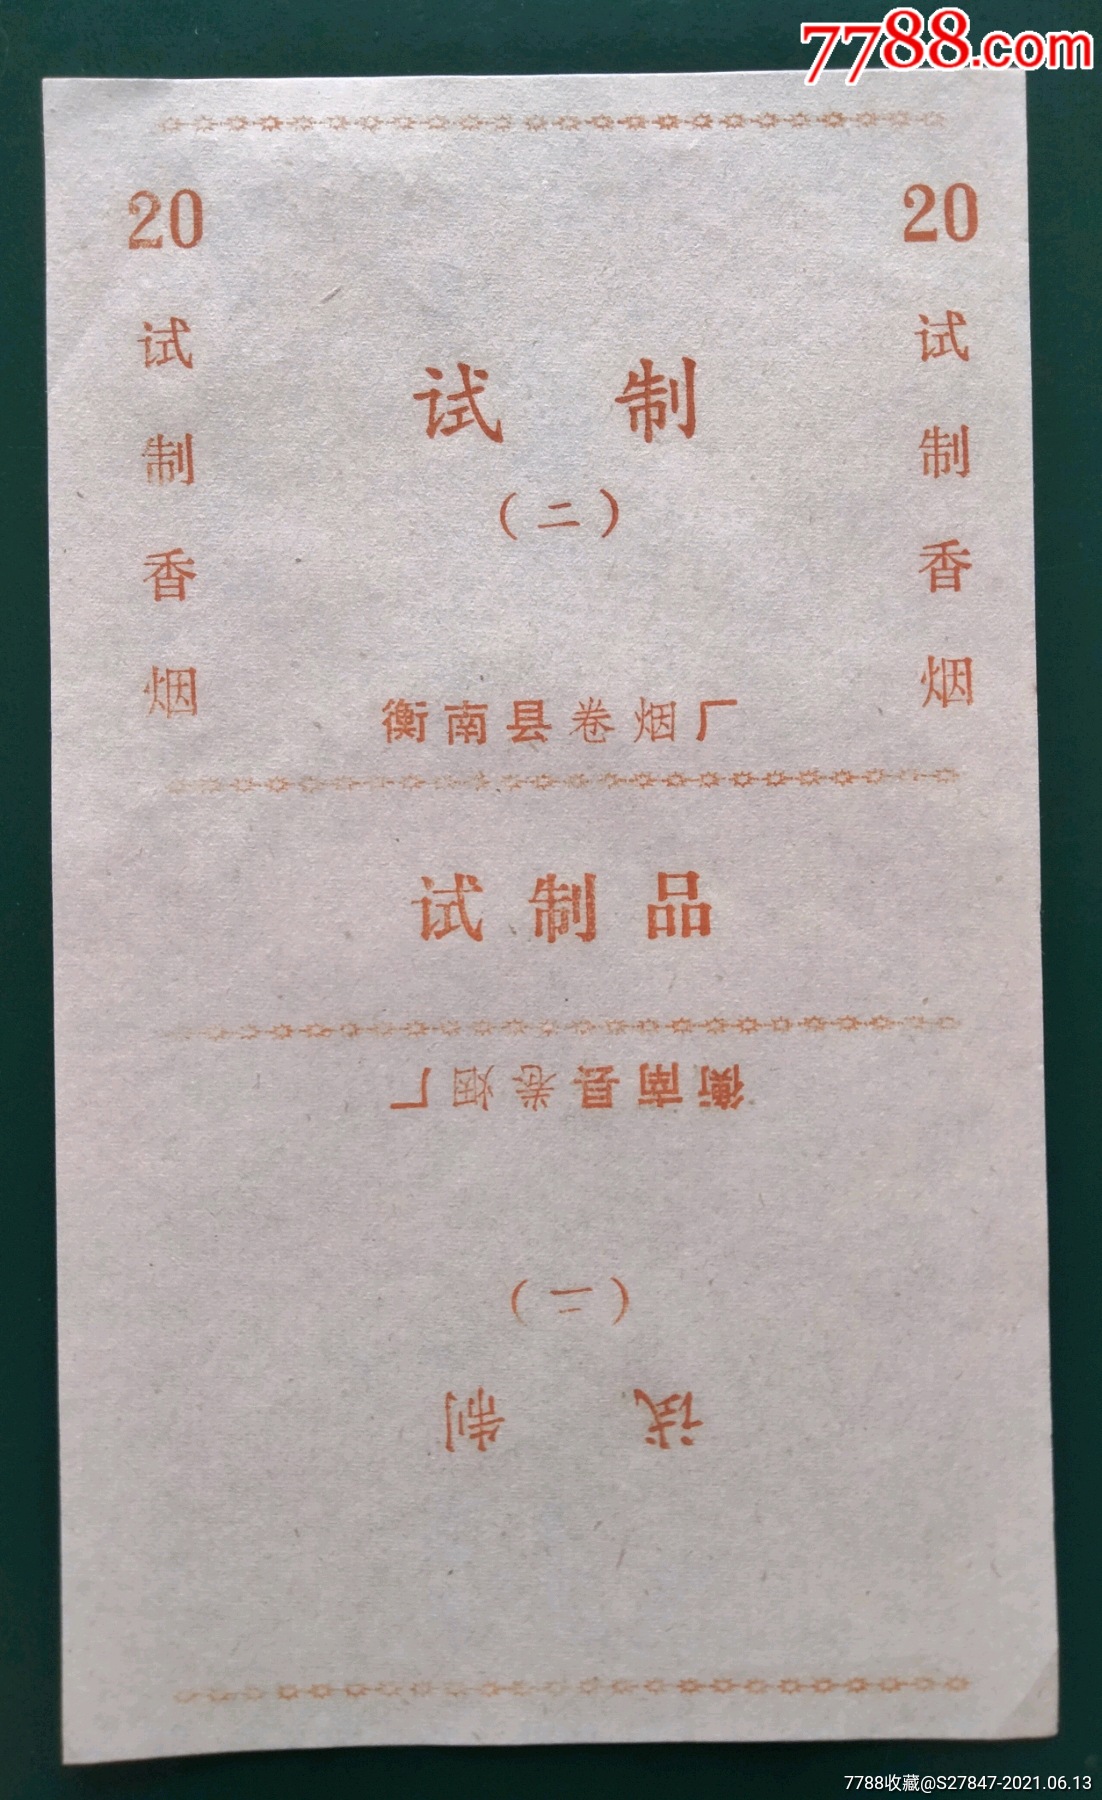 7788.com
20
20
试制香烟
试制香烟
试制
（二）
衡南县卷烟厂
试制品
衡南县卷烟厂
（二）
试制
7788收藏@S27847-2021.06.13